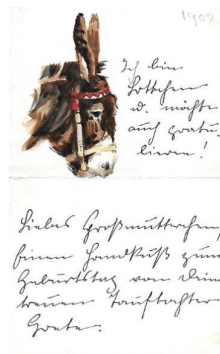 1909
Ich bin
Lottchen
u. möchte
auch gratu-
lieren!
Liebes Großmutterchen,
Einen Handkuß zum
Geburtstag von Deiner
treuen Tauftochter
Grete.